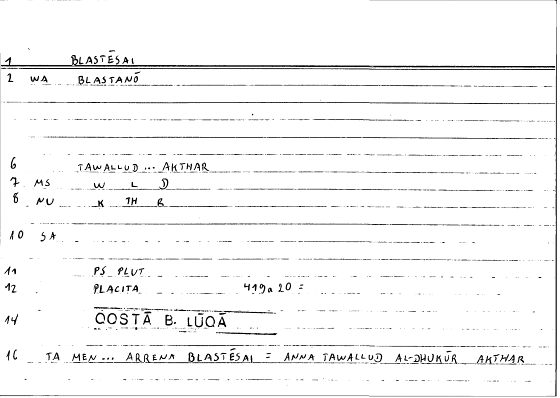 1 BLASTĒSAI
2 WA BLASTANŌ
6 TAWALLUD ... AKTHAR
7 MS W L D
8 NU K TH R
10 SA
11 PS PLUT
12 PLACITA 419a 20 =
14 QOSṬĀ B. LŪQĀ
16 TA MEN ... ARRENA BLASTĒSAI = ANNA TAWALLUD AL-DHUKŪR AKTHAR